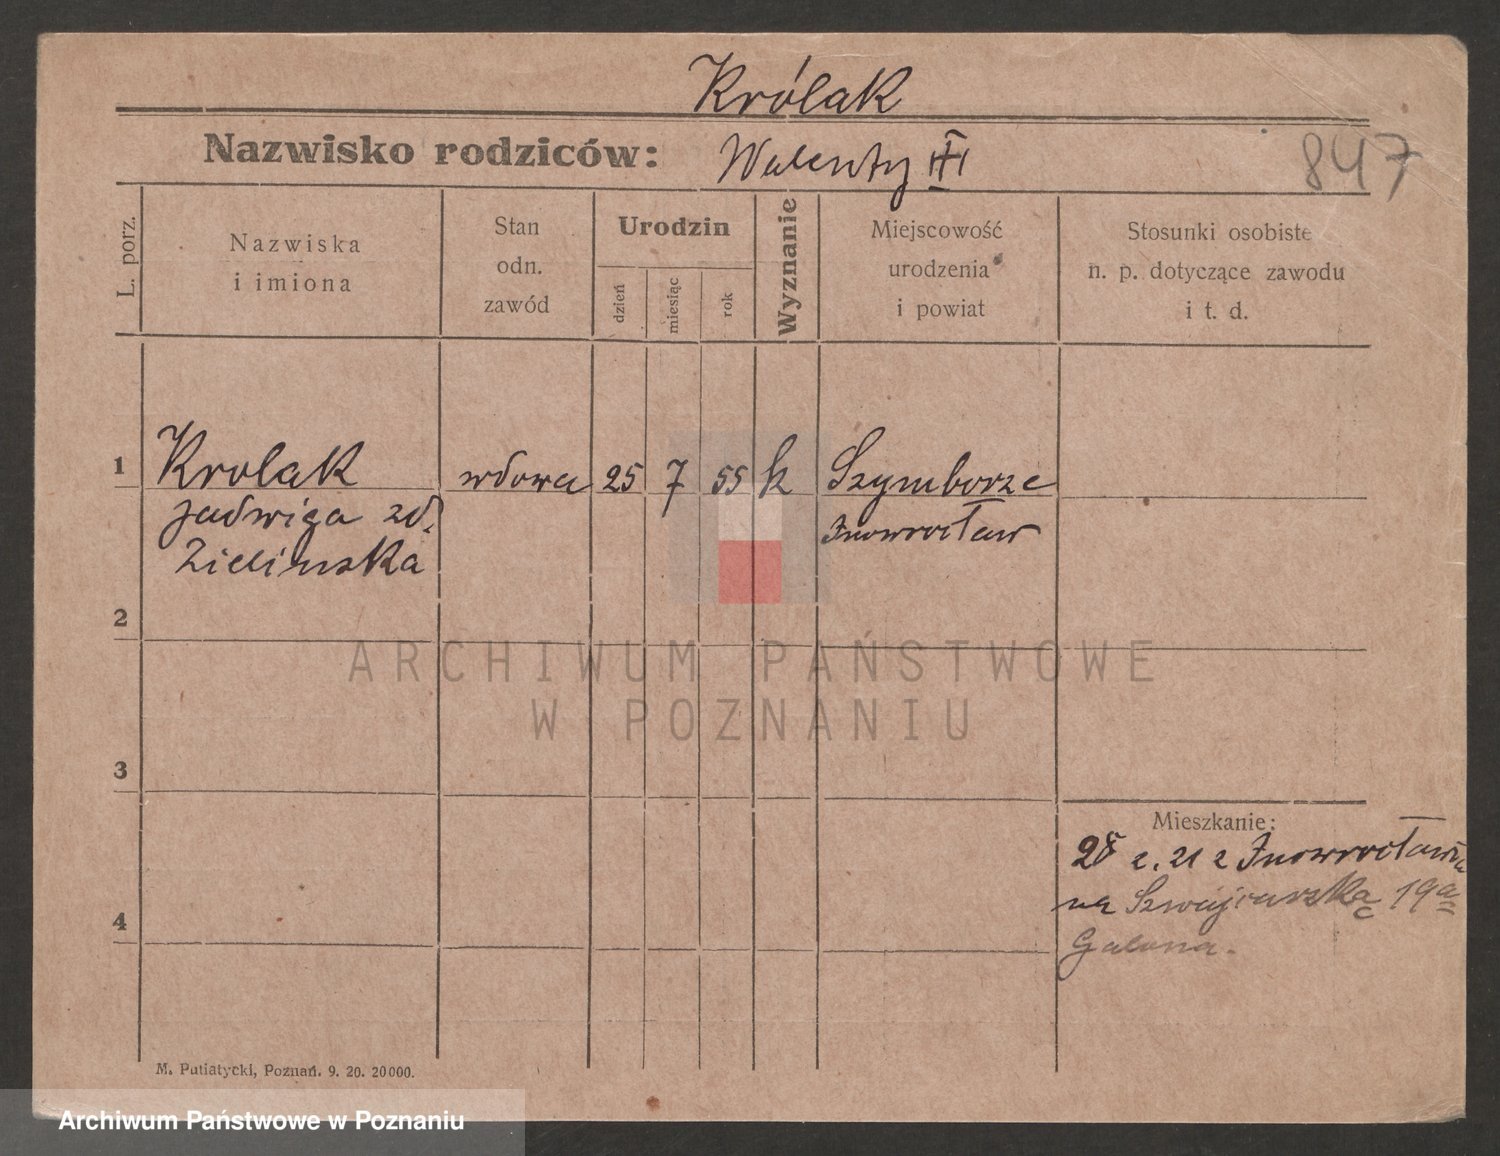 Królak
Nazwisko rodziców: Walenty III
847
L. porz.
Nazwiska
i imiona
Stan
odn.
zawód
Urodzin
dzień
miesiąc
rok
Wyznanie
Miejscowość
urodzenia
i powiat
Stosunki osobiste
n. p. dotyczące zawodu
i t. d.
1 Krolak wdowa 25 7 55 k Szymborze
Jadwiga zd. Inowrocław
Zielinska
2
ARCHIWUM PAŃSTWOWE
W POZNANIU
3
Mieszkanie:
2. 21 z Inowrocławia
na Szwajcarską 19a
4
Galona.
M. Putiatycki, Poznań. 9. 20. 20000.
Archiwum Państwowe w Poznaniu